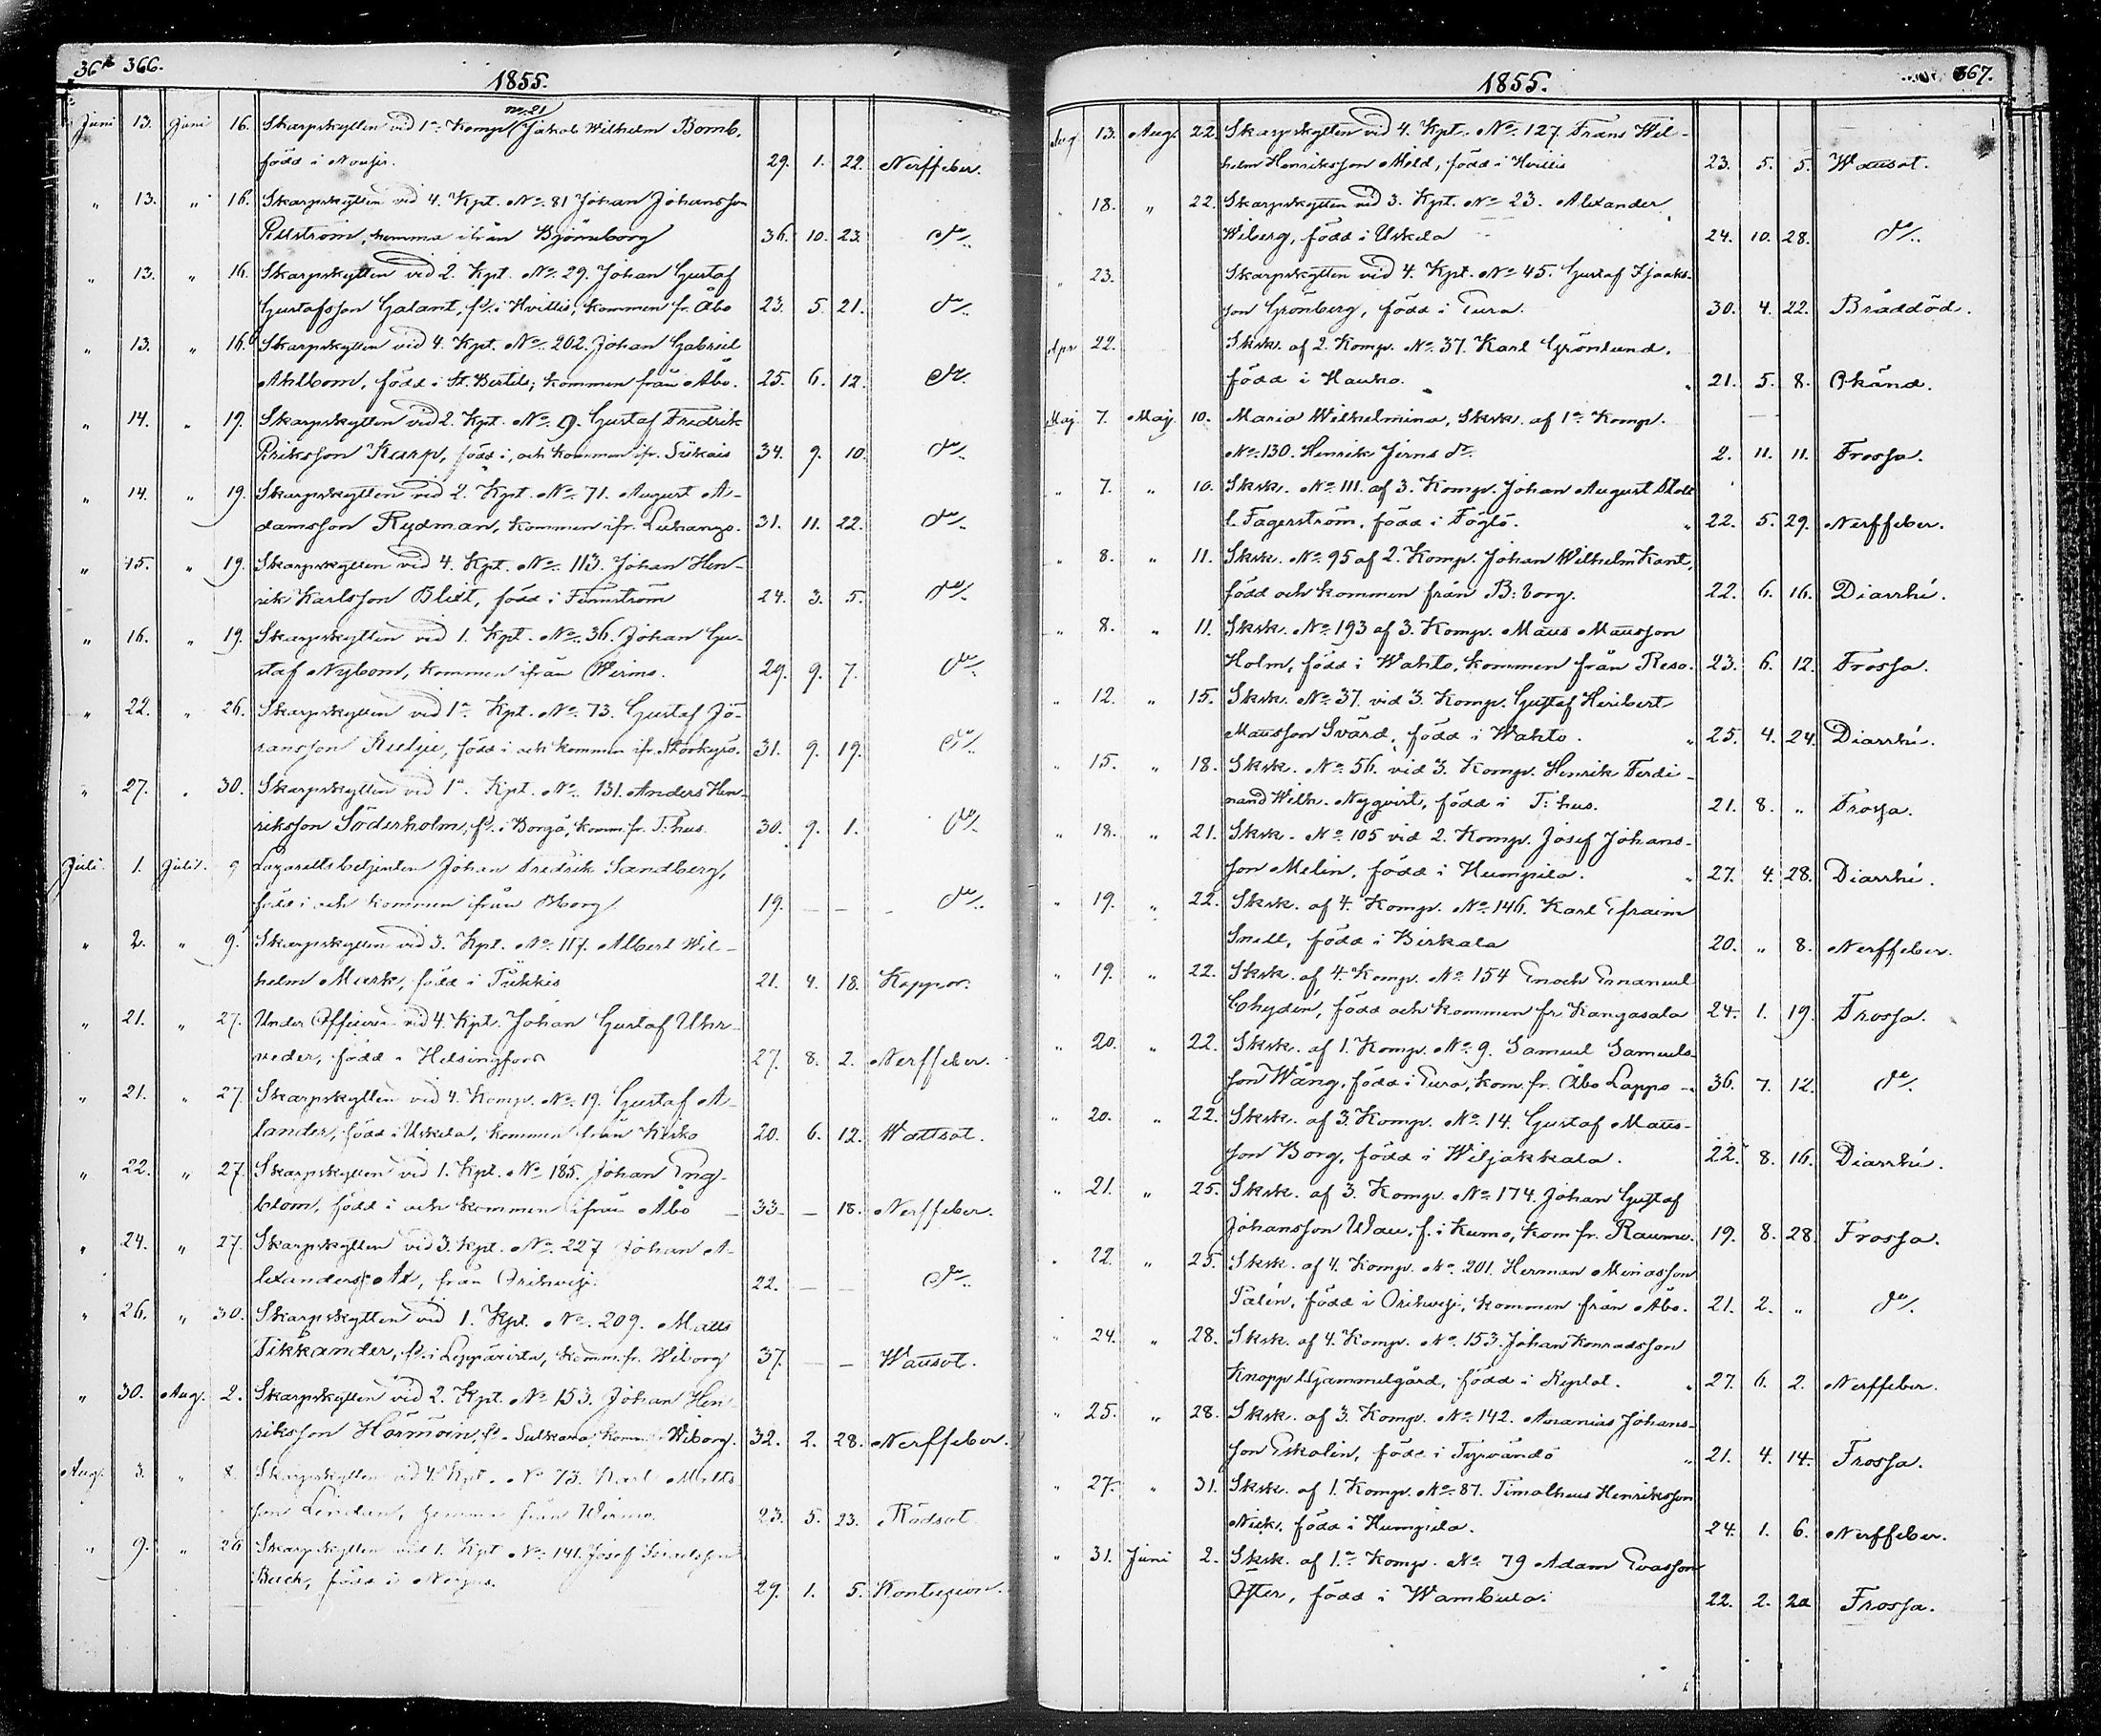 366.
1855.
Juni 13. Juni 16. Skarpskytten vid 1a Komp. No 21 Jakob Wilhelm Bomb,
född i Nousis. 29. 1. 22. Nerffeber.
" 13. " 16. Skarpskytten vid 4. Kpt. No. 81 Johan Johansson
hemma ifrån Björneborg 36. 10. 23. do/.
" 13. " 16. Skarpskytten vid 2. Kpt. No. 29. Johan Gustaf
Gustafsson Galant, fd. i Hvittis, kommen fr. Åbo 23. 5. 21. do/.
" 13. " 16. Skarpskytten vid 4. Kpt. No. 202. Johan Gabriel
Ahlbom, född i St. Bertils, kommen från Åbo. 25. 6. 12. do/.
" 14. " 19. Skarpskytten vid 2. Kpt. No. 9. Gustaf Fredrik
Eriksson Karp, född i, och kommen ifr. Siikais 34. 9. 10. do/.
" 14. " 19. Skarpskytten vid 2. Kpt. No. 71. August A-
damsson Rydman, kommen ifr. 31. 11. 22. do/.
" 15. " 19. Skarpskytten vid 4. Kpt. No. 113. Johan Hen-
rik Karlsson Blixt, född i Finnström 24. 3. 5. do/.
" 16. " 19. Skarpskytten vid 1. Kpt. No. 36. Johan Gu-
staf Nybom, kommen ifrån Wirmo. 29. 9. 7. do/.
" 22. " 26. Skarpskytten vid 1a Kpt. No. 73. Gustaf Jo-
hansson född i och kommen ifr. Storkyro. 31. 9. 19. do/.
" 27. " 30. Skarpskytten vid 1a. Kpt. No. 131. Anders Hen-
riksson Söderholm, fd. i Borgå, komm. fr. T:hus. 30. 9. 1. do/.
Juli 1. Juli 9 Lazarettsbetjenten Johan Fredrik Sandberg,
född i och kommen ifrån Bborg 19. — — do/.
" 2. " 9. Skarpskytten vid 3. Kpt. No. 117. Albert Wil-
helm Mark, född i Pükkis 21. 4. 18. Koppor.
" 21. " 27. Under Officeren vid 4. Kpt. Johan Gustaf Uhr-
veder, född i Helsingfors 27. 8. 2. Nerffeber.
" 21. " 27. Skarpskytten vid 4. Komp. No. 19. Gustaf A-
lander, född i Uskela, kommen från Kisko 20. 6. 12. Wattsot.
" 22. " 27. Skarpskytten vid 1. Kpt. No 185. Johan Eng-
blom, född i och kommen ifrån Åbo 33. — 18. Nerffeber.
" 24. " 27. Skarpskytten vid 3. Kpt. No. 227 Johan A-
lexanders Ax, från Orihvesi. 22. — — do/.
" 26. " 30. Skarpskytten vid 1. Kpt. No. 209. Matts
Tikkander, fd. i Leppävirta, komm. fr. Wiborg 37. — — Wattsot.
" 30. Aug. 2. Skarpskytten vid 2. Kpt. No 153. Johan Hen-
riksson Hörmöin, fd. i Sulkava, komm. Wiborg. 32. 2. 28. Nerffeber.
Aug. 3. " 8. Skarpskytten vid 4. Kpt. No 73. Karl Matts
son Linden, hemma från Wirmo. 23. 5. 23. Rödsot
" 9. " 26 Skarpskytten vid 1. Kpt No. 141. Josef Israelsson
Buch, född i 29. 1. 5. Kontusion.
367.
1855.
Aug 13. Aug. 22. Skarpskytten vid 4. Kpt. No. 127. Frans Wil-
helm Henriksson Mild, född i Hvittis 23. 5. 5. Wattsot.
" 18. " 22. Skarpskytten vid 3. Kpt. No 23. Alexander
Wiberg, född i Uskela 24. 10. 28. do/.
" 23. Skarpskytten vid 4. Kpt. No 45. Gustaf Isaaks-
son Grönberg, född i Eura. 30. 4. 22. Bråddöd.
Apr 22. Sksk. af 2. Komp. No. 37. Karl Grönlund,
född i Hauho. " 21. 5. 8. Okänd.
Maj 7. Maj. 10. Maria Wilhelmina, Sksk. af 1a Komp.
No. 130. Henrik Jerns dr. 2. 11. 11. Frossa.
" 7. " 10. Sksk. No 111. af 3. Komp. Johan August Stolt
l. Fagerström, född i Föglö. " 22. 5. 29. Nerffeber.
" 8. " 11. Sksk. No 95 af 2. Komp. Johan Wilhelm Kant,
född och kommen från B:borg. 22. 6. 16. Diarrhé.
" 8. " 11. Sksk. No 193 af 3. Komp. Matts Mattsson
Holm, född i Wahto, kommen från Reso. 23. 6. 12. Frossa.
" 12. " 15. Sksk. No 37. vid 3. Komp. Gustaf Heribert
Mattsson Svärd, född i Wahto. " 25. 4. 24. Diarrhé.
" 15. " 18. Sksk. No 56. vid 3. Komp. Henrik Ferdi-
nand Wilh. Nyqvist, född i T:hus. 21. 8. " Frossa.
" 18. " 21. Sksk. No 105 vid 2. Komp. Josef Johans-
son Melin, född i Humpila. " 27. 4. 28. Diarrhé.
" 19. " 22. Sksk. af 4. Komp. No 146. Karl Efraim
Snell, född i Birkala 20. " 8. Nerffeber.
" 19. " 22. Sksk. af 4. Komp. No 154 Enoch Emanuel
Chydén, född och kommen fr. Kangasala 24. 1. 19. Frossa.
" 20. " 22. Sksk. af 1. Komp. No. 9. Samuel Samuels-
son Wång, född i Eura, kom. fr. Åbo Lappo 36. 7. 12. do/.
" 20. " 22. Sksk. af 3. Komp. No 14. Gustaf Matts-
son Borg, född i Wiljakkala. 22. 8. 16. Diarrhé.
" 21. " 25. Sksk. af 3. Komp. No 174. Johan Gustaf
Johansson f. i Kumo, kom fr. Raumo. 19. 8. 28. Frossa.
" 22. " 25. Sksk. af 4. Komp. No. 201. Herman
Palén, född i Orihvesi, kommen från Åbo. 21. 2. " do/.
" 24. " 28. Sksk. af 4. Komp. No. 153. Johan Konradsson
Knopp född i 27. 6. 2. Nerffeber.
" 25. " 28. Sksk. af 3. Komp. No 142. Ananias Johans-
son Eskolin, född i Tyrvändö " 21. 4. 14. Frossa.
" 27. " 31. Sksk. af 1. Komp. No. 87. Timotheus Henriksson
Nick, född i Humpila. 24. 1. 6. Nerffeber.
" 31. Juni 2. Sksk. af 1.a Komp. No 79 Adam Evasson
Öfter, född i Wambula. 22. 2. 20 Frossa.